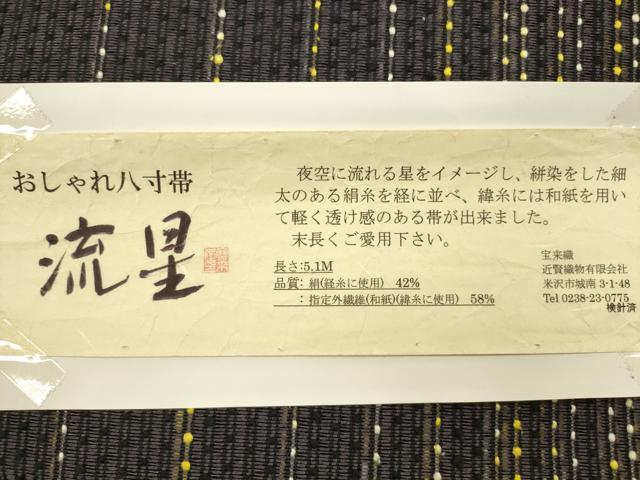 おしゃれ八寸帯
流星
夜空に流れる星をイメージし、絣染をした細
太のある絹糸を経に並べ、緯糸には和紙を用い
て軽く透け感のある帯が出来ました。
末長くご愛用下さい。
長さ:5.1M
品質: 絹(経糸に使用) 42%
: 指定外繊維(和紙)(緯糸に使用) 58%
宝来織
近賢織物有限会社
米沢市城南 3-1-48
Tel 0238-23-0775
検針済